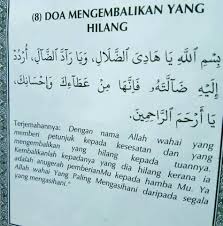 (8) DOA MENGEMBALIKAN YANG
HILANG
بِسْمِ اللَّهِ يَا هَادِيَ الضَّلَالِ، وَيَا رَآدَّ الضَّآلِ، اُرْدُدْ
إِلَيْهِ ضَالَّتَهُ فَإِنَّهَا مِنْ عَطَآءِكَ وَإِحْسَانِكَ،
يَا أَرْحَمَ الرَّاحِمِيْنَ.
Terjemahannya: Dengan nama Allah wahai yang
memberi petunjuk kepada kesesatan dan yang
mengembalikan yang hilang kepada tuannya.
Kembalikanlah kepadanya yang dia hilang kerana ia
adalah anugerah pemberianMu kepada hamba Mu. Ya
Allah wahai Yang Paling Mengasihani daripada segala
yang mengasihani."